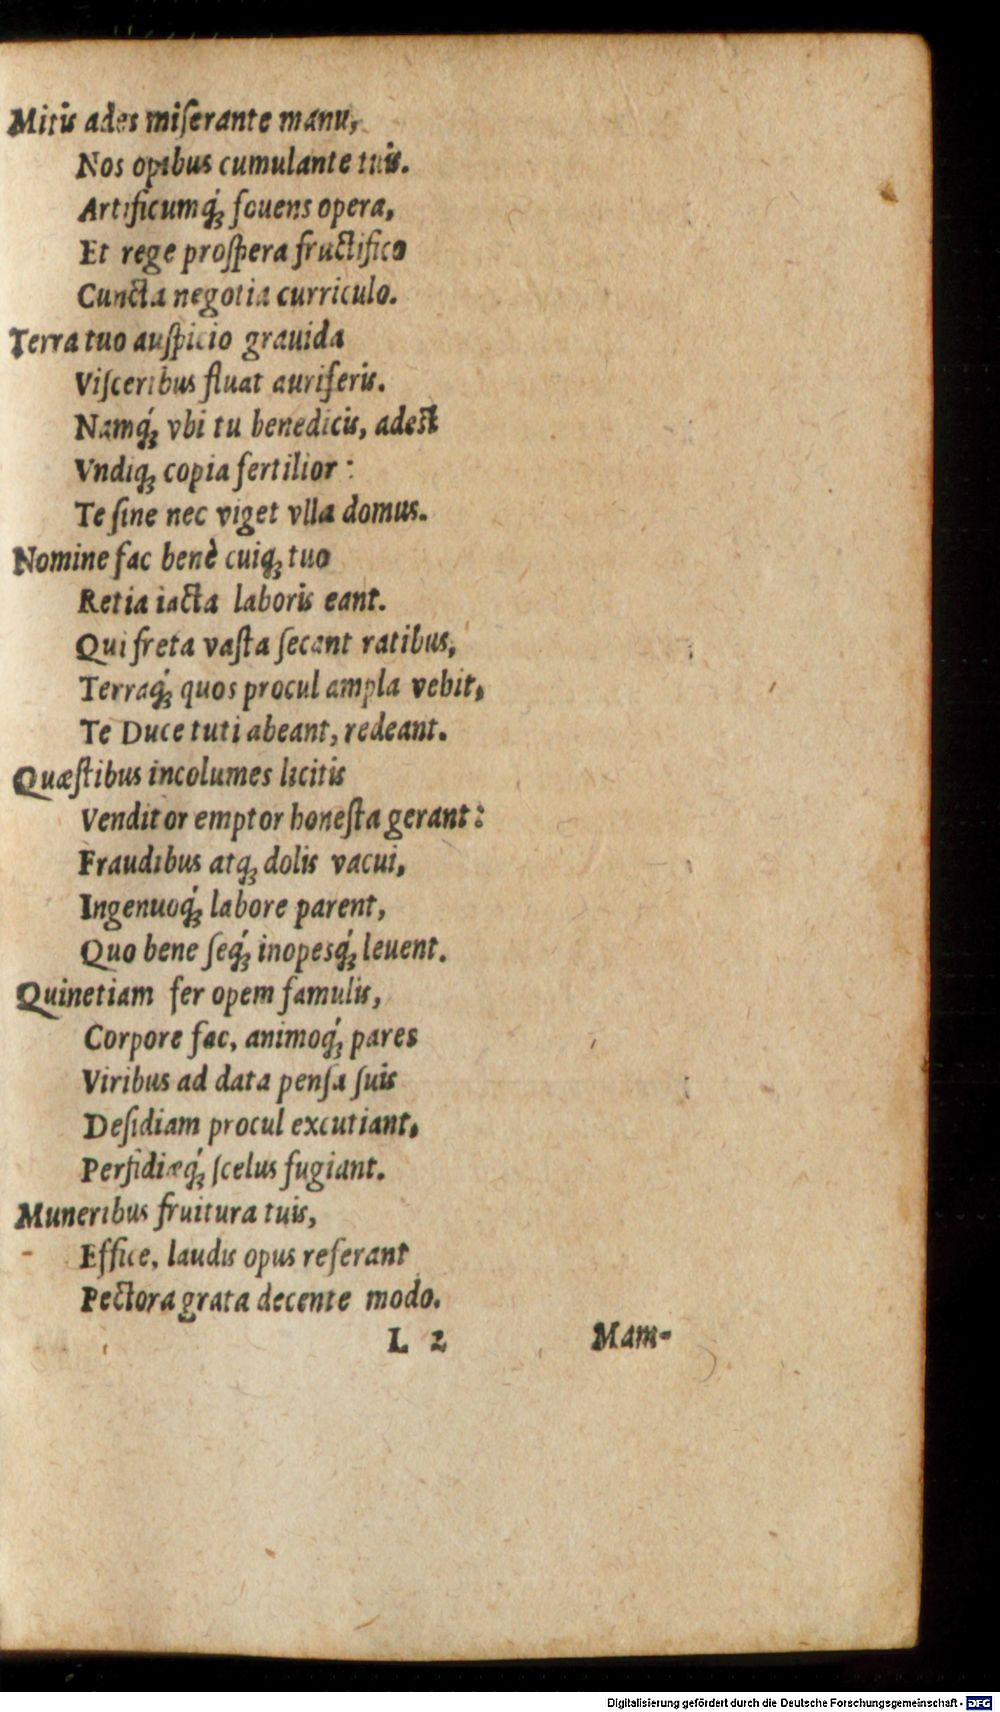 Mitis ades miſerante manu,
Nos opibus cumulante tuis.
Artificumq́ꝫ fouens opera,
Et rege proſpera fructifico
Cuncta negotia curriculo.
Terra tuo auſpicio grauida
Viſceribus fluat auriferis.
Namq́ꝫ vbi tu benedicis, adest
Vndiqꝫ copia fertilior :
Te ſine nec viget vlla domus.
Nomine fac benè cuiqꝫ tuo
Retia iacta laboris eant.
Qui freta vaſta ſecant ratibus,
Terraq́ꝫ quos procul ampla vehit,
Te Duce tuti abeant, redeant.
Quæſtibus incolumes licitis
Venditor emptor honeſta gerant:
Fraudibus atqꝫ dolis vacui,
Ingenuoq́ꝫ labore parent,
Quo bene ſeq́ꝫ inopesq́ꝫ leuent.
Quinetiam fer opem famulis,
Corpore fac, animoq́ꝫ pares
Viribus ad data penſa ſuis
Deſidiam procul excutiant,
Perfidiæq́ꝫ ſcelus fugiant.
Muneribus fruitura tuis,
Effice, laudis opus referant
Pectora grata decente modo.
L 2 Mam-
Digitalisierung gefördert durch die Deutsche Forschungsgemeinschaft - DFG